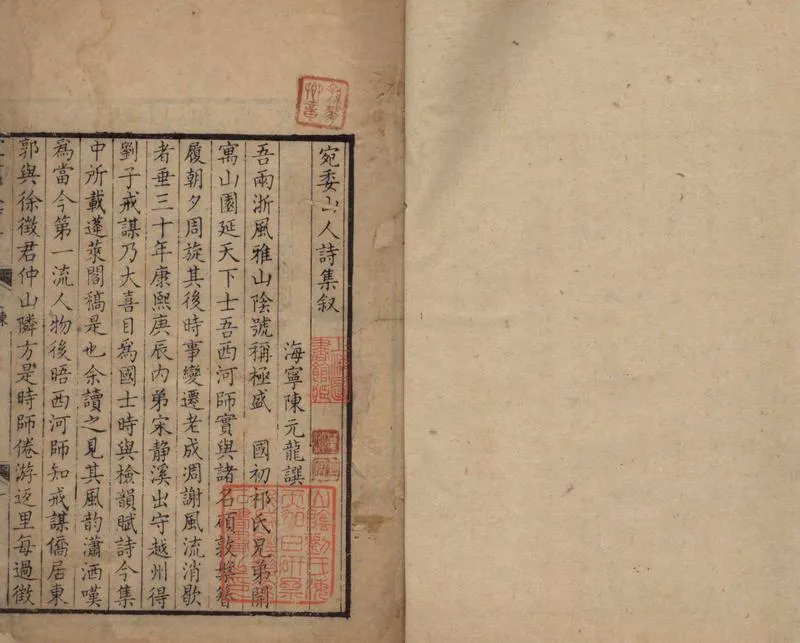 宛委山人詩集叙
海寧陳元龍譔
吾兩浙風雅山陰號稱極盛　國初祁氏兄弟開
寓山園延天下士吾西河師實與諸名碩敦槃簪
履朝夕周旋其後時事變遷老成凋謝風流消歇
者垂三十年康熙庚辰內弟宋静溪出守越州得
劉子戒謀乃大喜目為國士時與檢韻賦詩今集
中所載蓬萊閣稿是也余讀之見其風韵瀟洒嘆
為當今第一流人物後晤西河師知戒謀僑居東
郭與徐徵君仲山隣方是時師倦游返里每過徵